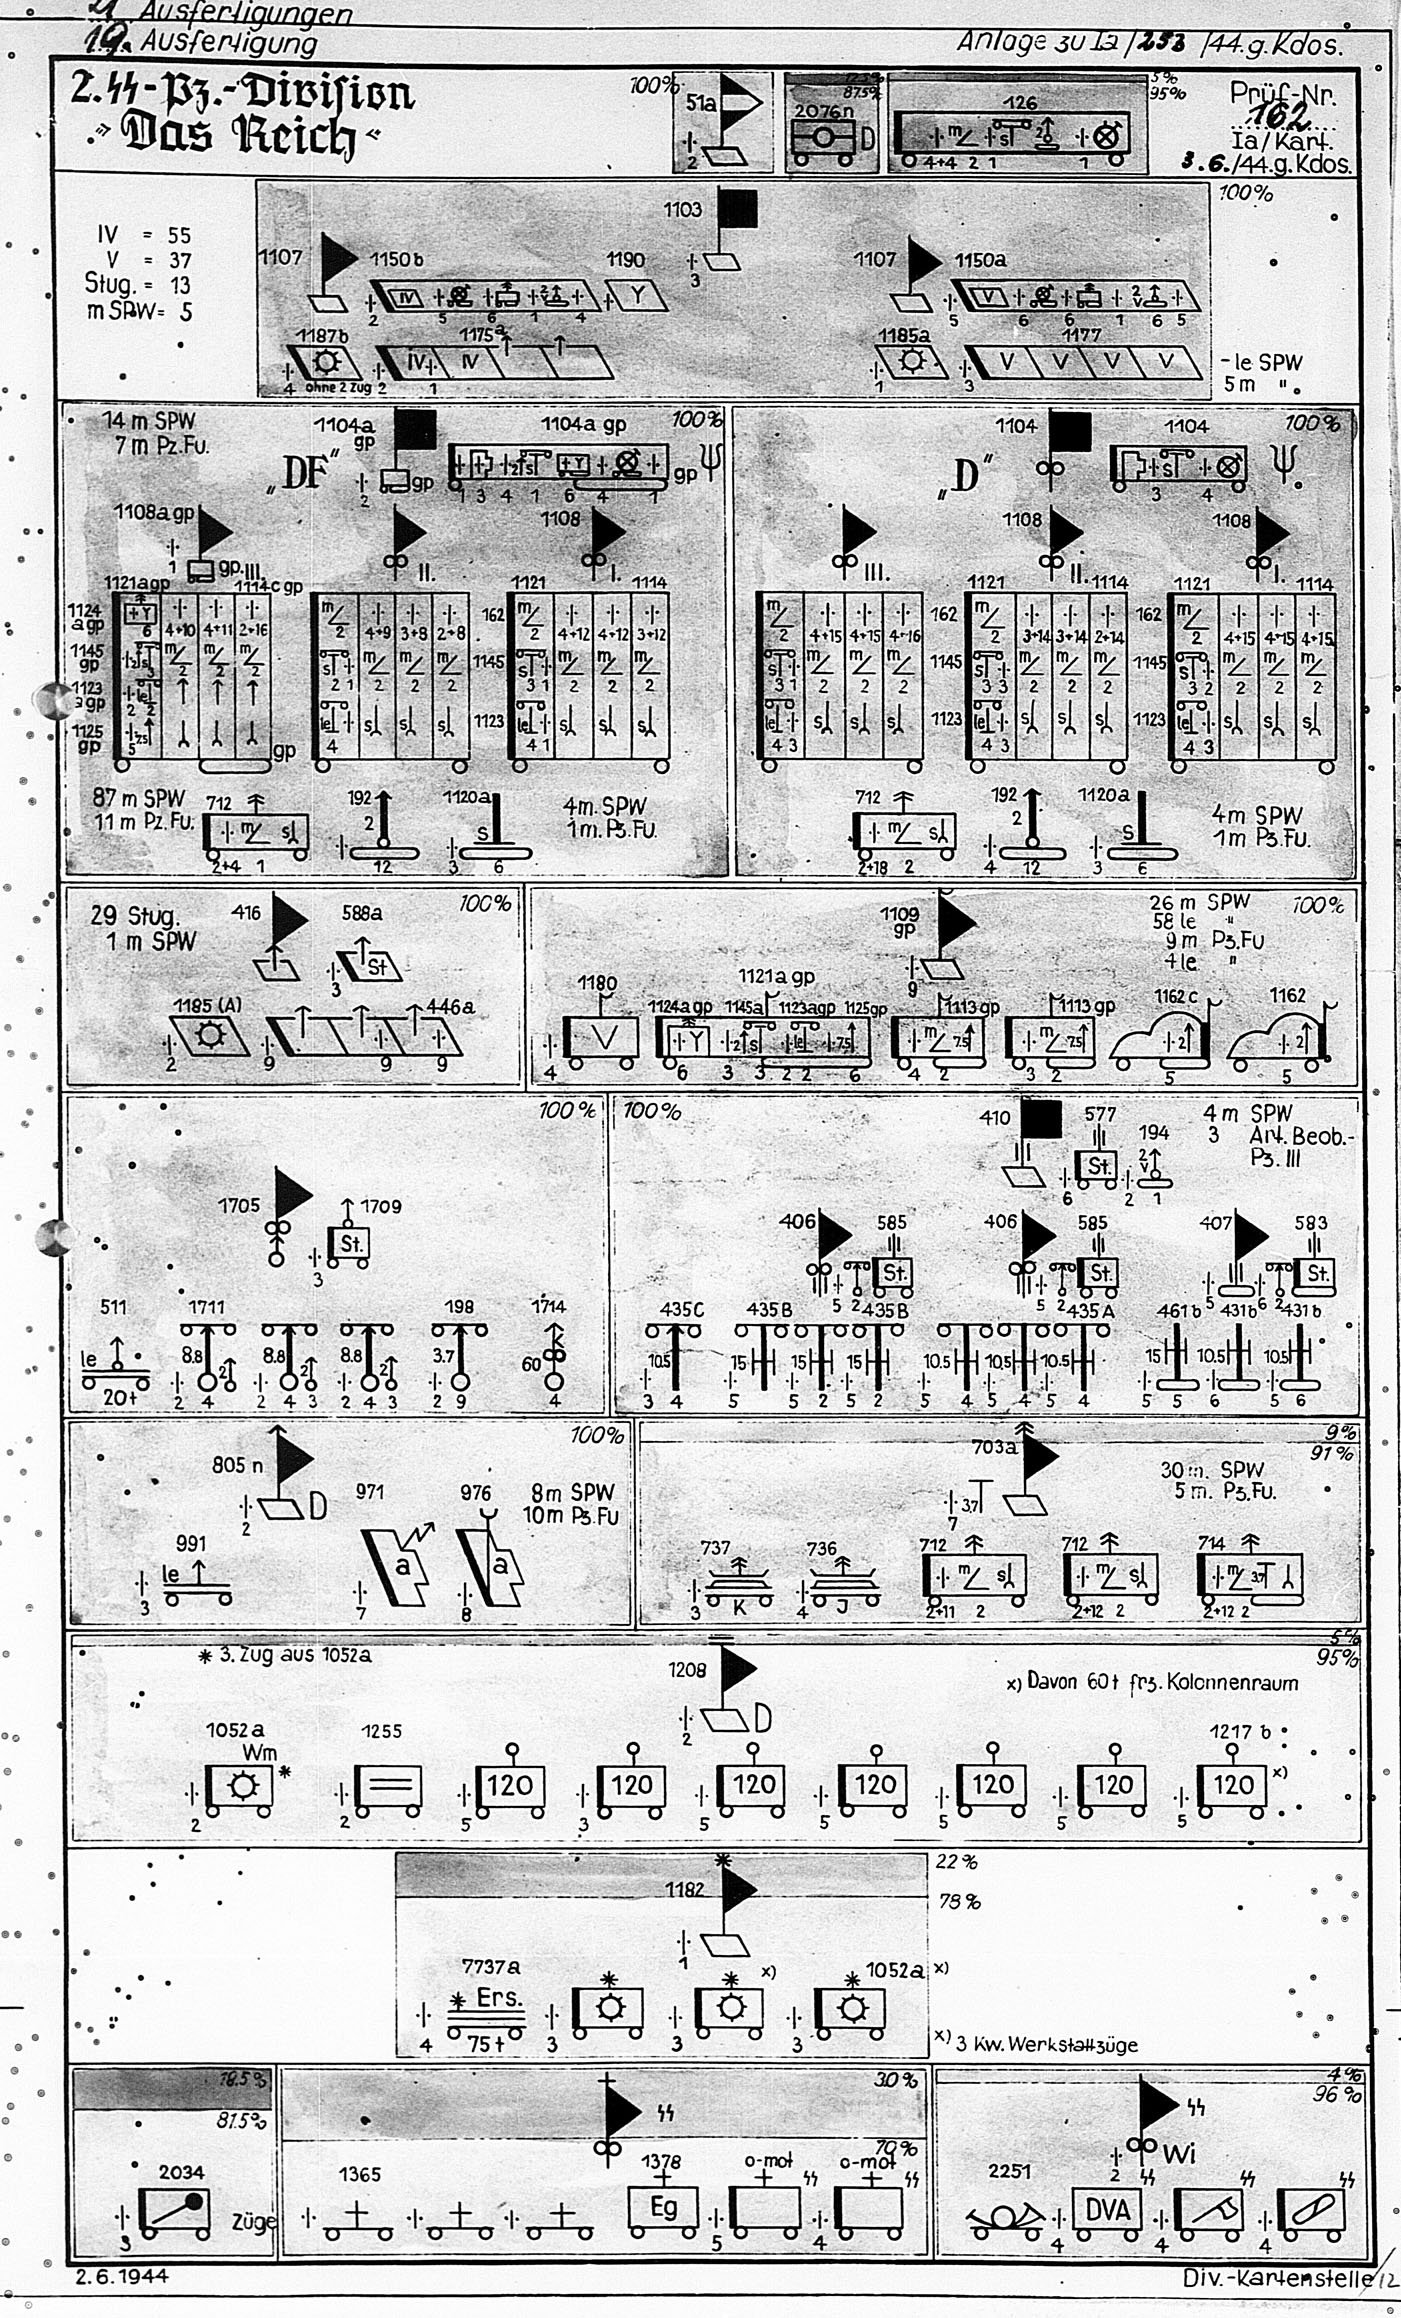 21 Ausfertigungen
19. Ausfertigung
Anlage zu Ia/252/44.g.Kdos.
2.SS-Pz.-Division
"Das Reich"
100%
51a
2
87.5%
2076n
D
5%
95%
126
m s 2
4+4 2 1 1
Prüf-Nr.
162
Ia/Kart.
3.6./44.g.Kdos.
IV = 55
V = 37
Stug. = 13
m SPW= 5
1103
3
100%
1107
1150b
1190
IV
Y
2 5 6 1 4
1107
1150a
V
5 6 6 1 6 5
1187b
4 ohne 2 Zug
1175a
IV IV
2 1
1185a
1
1177
V V V V
3
- le SPW
5 m "
14 m SPW
7 m Pz.Fu.
„DF"
1104a
gp
2
gp
1104a gp
1 3 4 1 6 4 1
gp
100%
1108a gp
1
gp.III.
II.
1108
I.
1121a gp
1114c gp
1121
1114
1124
a gp
1145
gp
1123
a gp
1125
gp
+Y
6
4+10 4+11 2+16
m m m
2 2 2
gp
m
2
4+9 3+8 2+8
s m m m
2 1 2 2 2
le s s s
4
162
1145
1123
m
2
4+12 4+12 3+12
s m m m
3 1 2 2 2
le s s s
4 1
87 m SPW
11 m Pz.Fu.
712
m s
2+4 1
192
2
12
1120a
s
3 6
4m. SPW
1m. Pz.Fu.
„D"
1104
1104
s
3 4
100%
III.
1108
II.
1108
I.
1121
1114
1121
1114
m
2
4+15 4+15 4+16
s m m m
3 1 2 2 2
le s s s
4 3
162
1145
1123
m
2
3+14 3+14 2+14
s m m m
3 3 2 2 2
le s s s
4 3
162
1145
1123
m
2
4+15 4+15 4+15
s m m m
3 2 2 2 2
le s s s
4 3
712
m s
2+18 2
192
2
4 12
1120a
s
3 6
4m SPW
1m Pz.Fu.
29 Stug.
1 m SPW
416
588a
St
3
100%
1185 (A)
2
446a
9 9 9
1109
gp
9
26 m SPW
58 le "
9 m Pz.Fu
4 le "
100%
1180
V
4
1121a gp
1124a gp 1145a 1123agp 1125gp
Y 2 s le 7.5
6 3 3 2 2 6
1113 gp
m 7.5
4 2
1113 gp
m 7.5
3 2
1162c
2
5
1162
2
5
100%
1705
1709
St.
3
511
le
20t
1711
8.8 2
2 4
8.8 2
2 4 3
8.8 2
2 4 3
198
3.7
2 9
1714
K
60
4
100%
410
577
St.
6
194
2
V
2 1
4 m SPW
3 Art.Beob.-
Pz. III
406
585
St.
5 2
406
585
St.
5 2
407
583
St.
5 6 2
435C
10.5
3 4
435B
435B
15 15 15
5 5 2 5 2
435A
10.5 10.5 10.5
5 4 5 4 5 4
461b
431b
431b
15 10.5 10.5
5 5 6 5 6
100%
805 n
D
2
971
a
7
976
a
8
8m SPW
10m Pz.Fu
991
le
3
9%
91%
703a
3.7
7
30m. SPW
5m. Pz.Fu.
737
3 K
736
4 J
712
m s
2+11 2
712
m s
2+12 2
714
m 3.7
2+12 2
* 3. Zug aus 1052a
1208
D
2
5%
95%
x) Davon 60t frz. Kolonnenraum
1052a
Wm
*
2
1255
2
120 120 120 120 120 120 120
5 3 5 5 5 5 5
1217 b
x)
22%
78%
1182
1
7737a
* Ers.
4 75t
3
x)
3
1052a x)
3
x) 3 Kw. Werkstattzüge
18.5%
81.5%
2034
3 Züge
30%
70%
SS
1365
1378
Eg
o-mot
SS
5
o-mot
SS
4
4%
96%
SS
Wi
2
2251
SS
DVA
4
SS
4
SS
4
2.6.1944
Div.-Kartenstelle/12